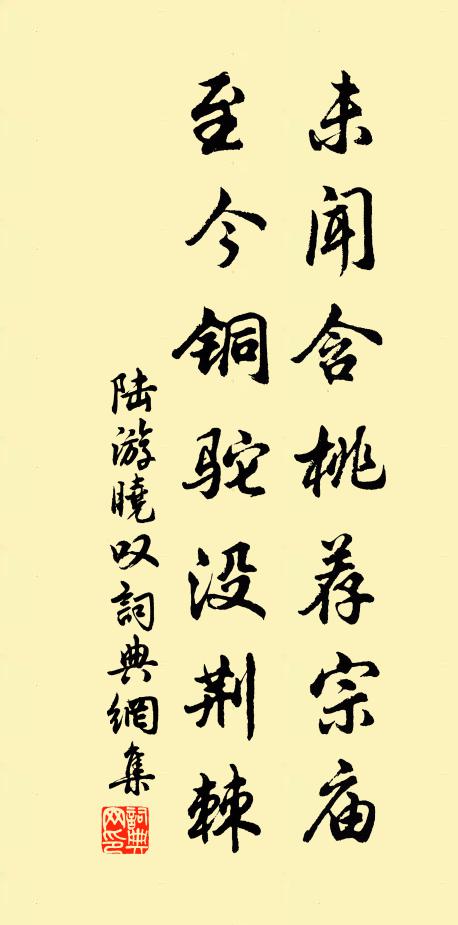 未闻含桃荐宗庙
至今铜驼没荆棘
陆游曉叹詞典網集
詞典
网印